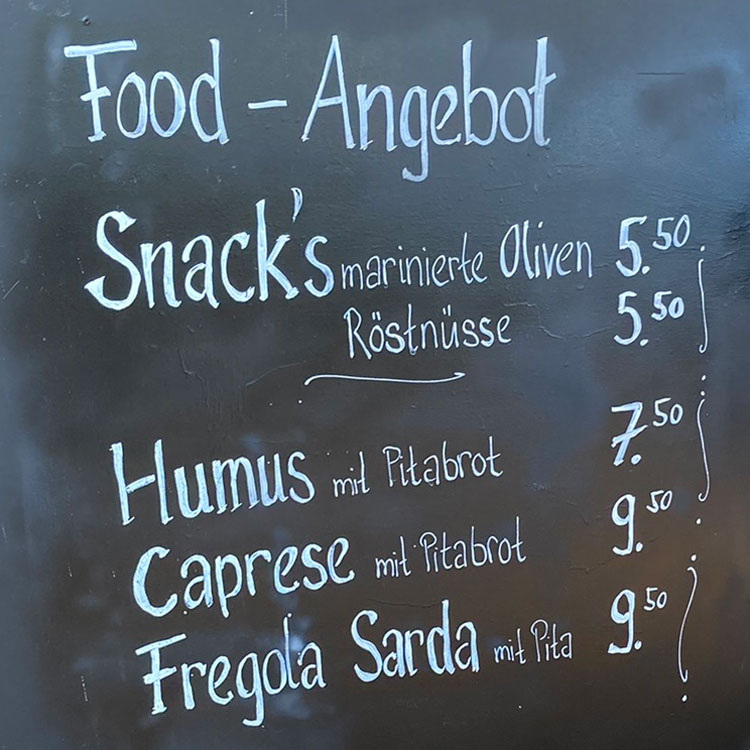 Food - Angebot
Snack's marinierte Oliven 5.50
Röstnüsse 5.50
Humus mit Pitabrot 7.50
Caprese mit Pitabrot 9.50
Fregola Sarda mit Pita 9.50